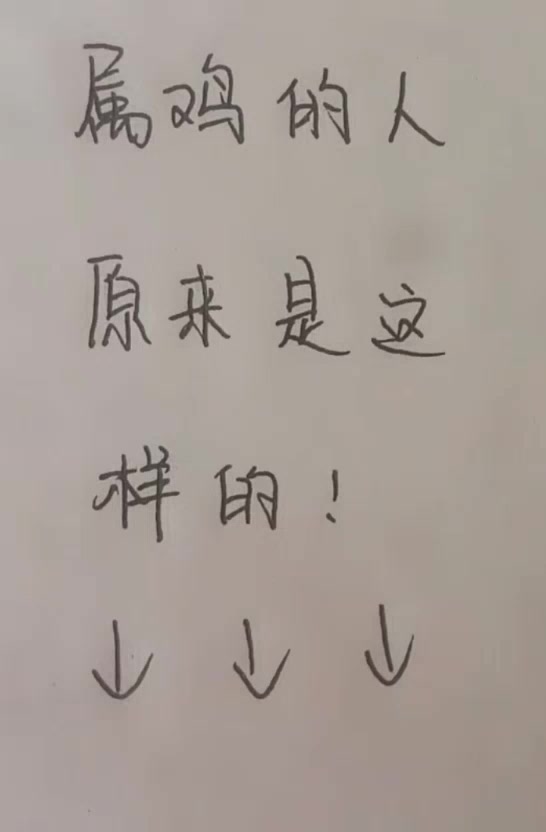 属鸡的人
原来是这
样的！
↓ ↓ ↓